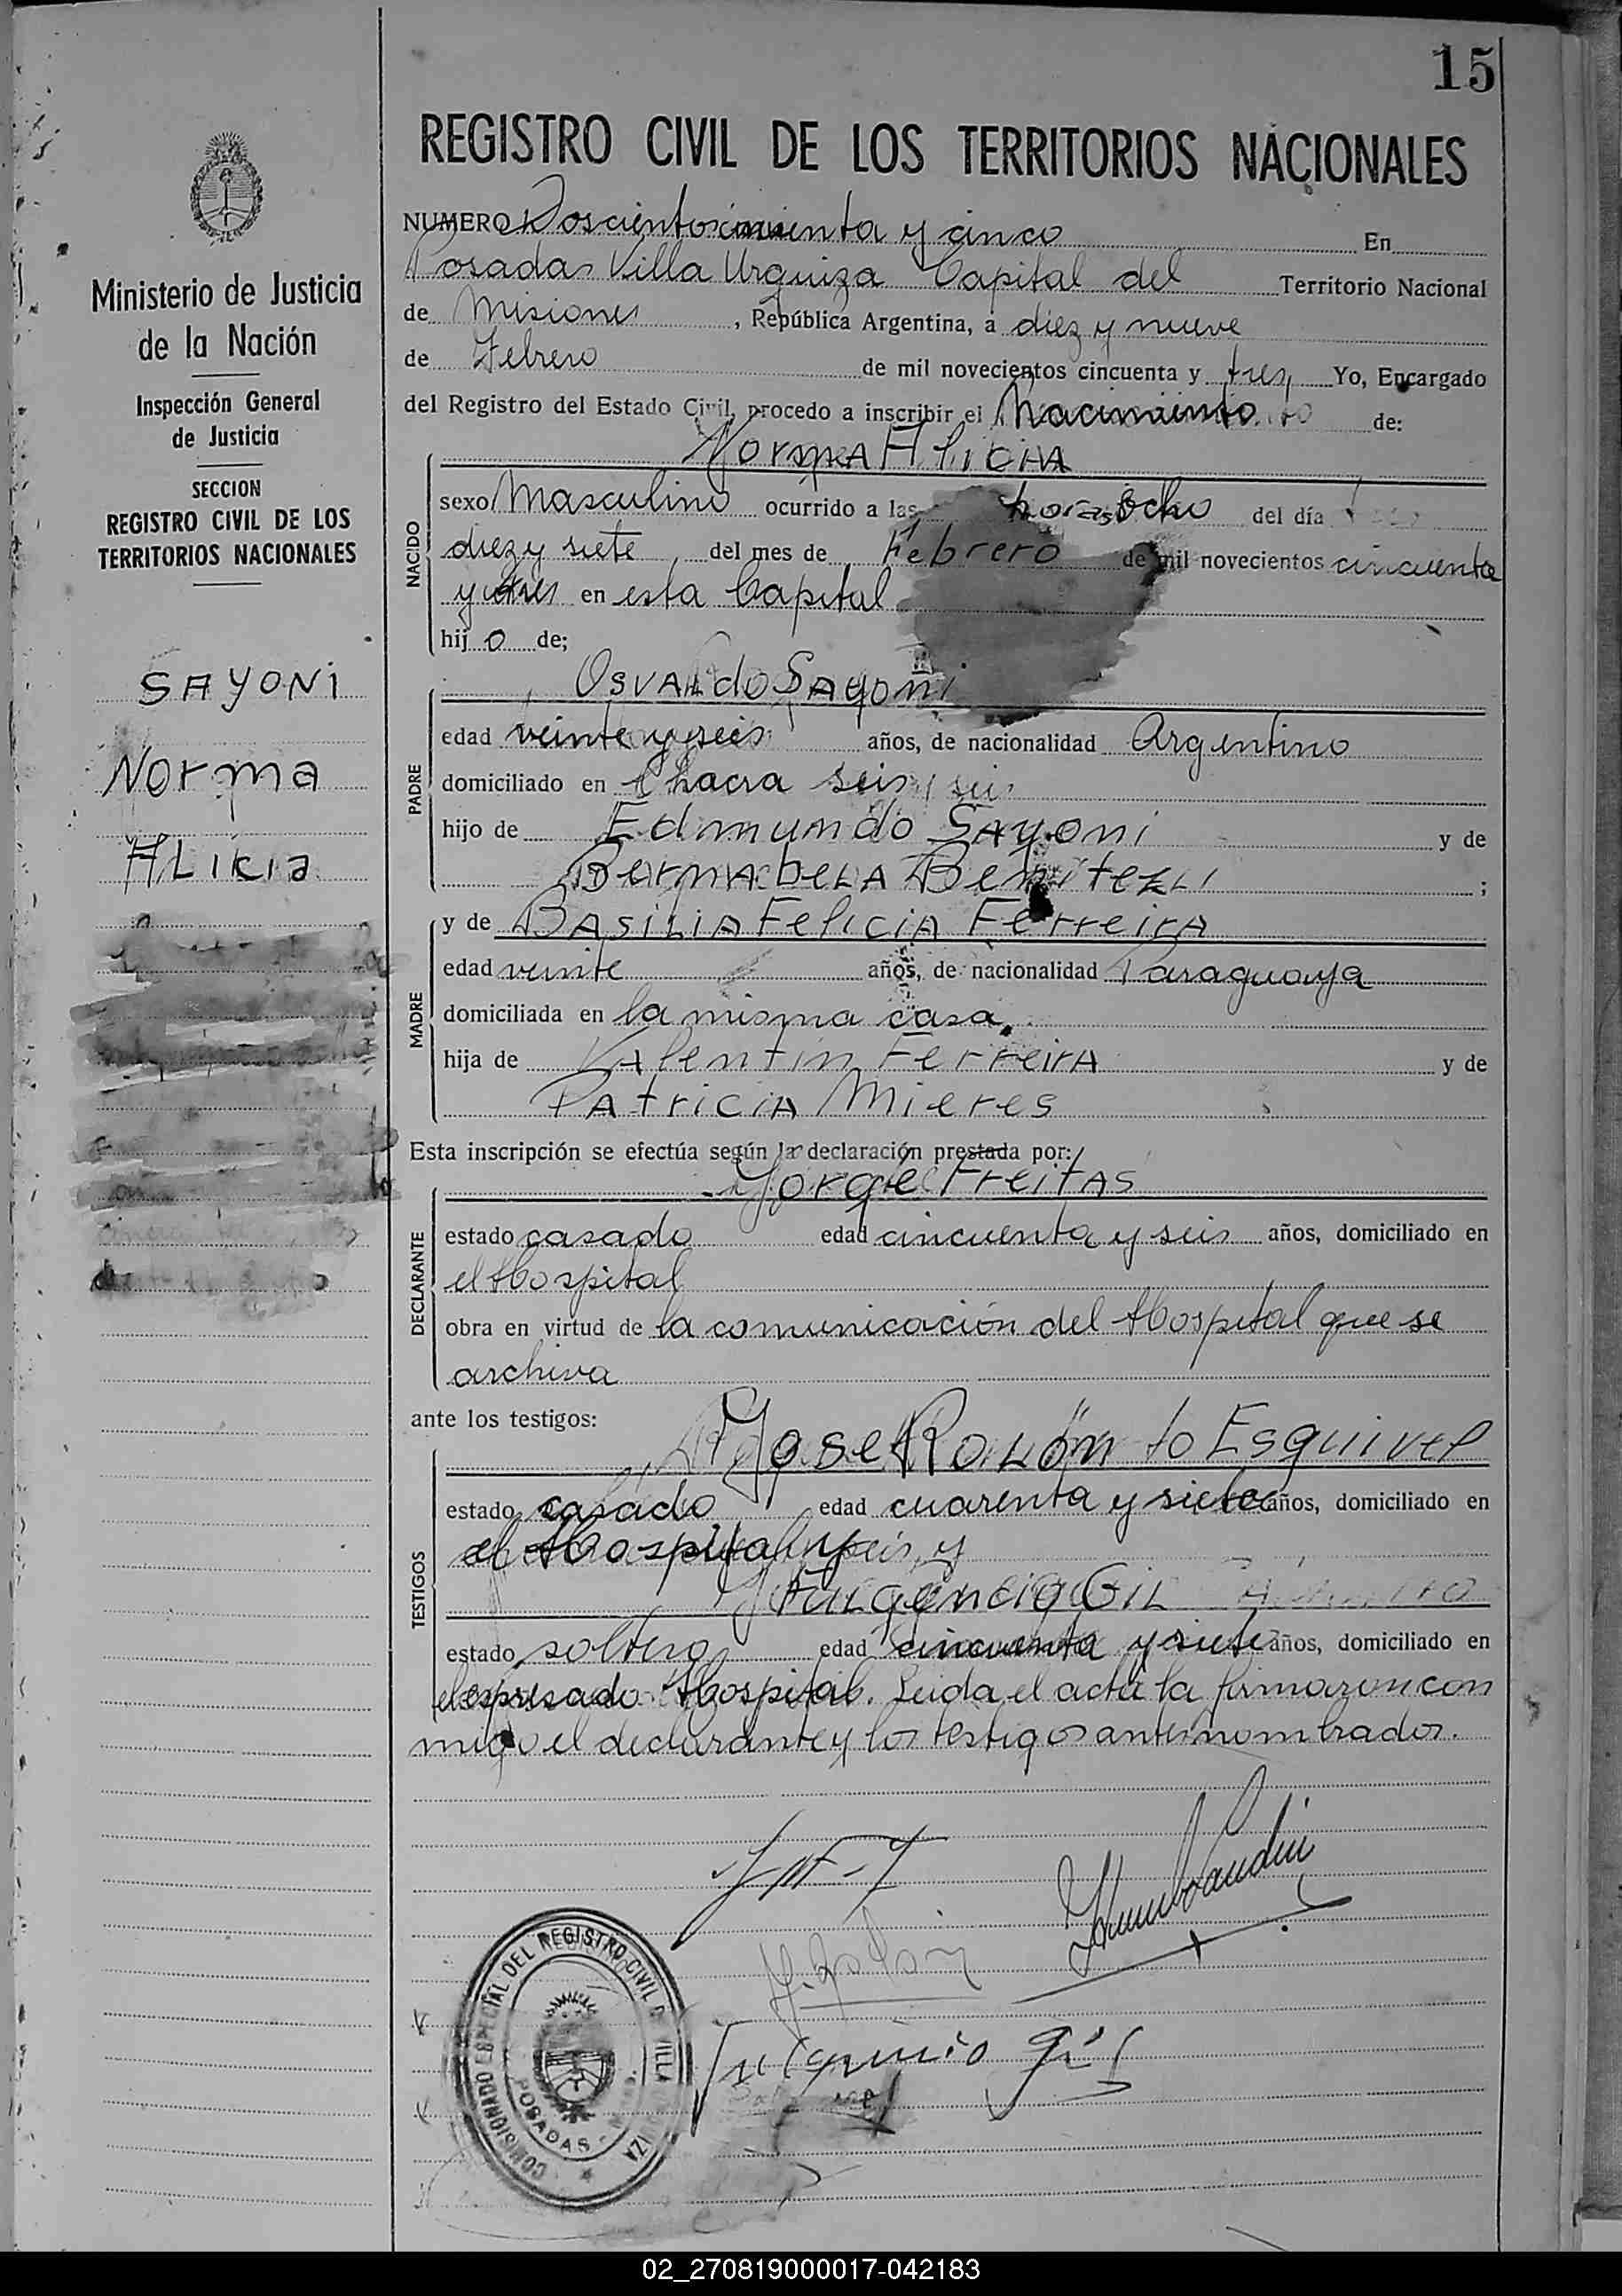 15
REGISTRO CIVIL DE LOS TERRITORIOS NACIONALES
NUMERO Doscientos cincuenta y cinco En
Posadas Villa Urquiza Capital del Territorio Nacional
de Misiones, República Argentina, a diez y nueve
de Febrero de mil novecientos cincuenta y tres, Yo, Encargado
del Registro del Estado Civil, procedo a inscribir el Nacimiento de:
Norma Alicia
NACIDO
sexo Masculino ocurrido a las horas ocho del día
diez y siete del mes de Febrero de mil novecientos cincuenta
y tres en esta Capital
hijo de;
PADRE
Osvaldo Sayoni
edad veinte y seis años, de nacionalidad Argentino
domiciliado en Chacra seis
hijo de Edmundo Sayoni y de
Bernabela Benitez ;
MADRE
y de Basilia Felicia Ferreira
edad veinte años, de nacionalidad Paraguaya
domiciliada en la misma casa.
hija de Valentin Ferreira y de
Patricia Mieres
Esta inscripción se efectúa según la declaración prestada por:
DECLARANTE
Jorge Freitas
estado casado edad cincuenta y seis años, domiciliado en
el Hospital
obra en virtud de la comunicación del Hospital que se
archiva
ante los testigos:
TESTIGOS
Jose Rolón Esquivel
estado casado edad cuarenta y siete años, domiciliado en
el Hospital y
Fulgencio Gil
estado soltero edad cincuenta y siete años, domiciliado en
el expresado Hospital. Leida el acta la firmaron con
migo el declarante y los testigos antes nombrados.
J. Rolon
Fulgencio Gil
COMISIONADO ESPECIAL DEL REGISTRO CIVIL VILLA
POSADAS
Ministerio de Justicia
de la Nación
Inspección General
de Justicia
SECCION
REGISTRO CIVIL DE LOS
TERRITORIOS NACIONALES
SAYONI
Norma
ALicia
02_270819000017-042183